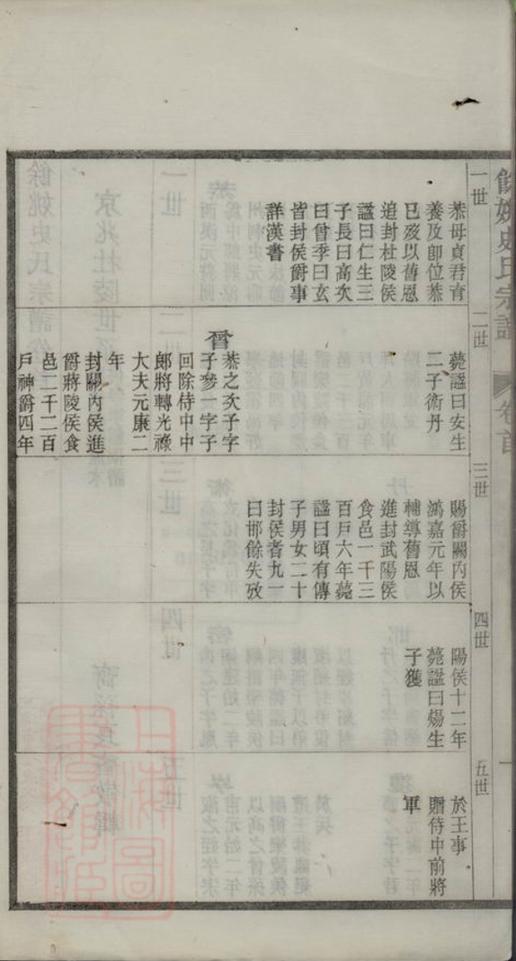 餘姚史氏宗譜
卷首
一世
恭母貞君育
養及即位恭
已歿以舊恩
追封杜陵侯
諡曰仁生三
子長曰高次
曰曾季曰玄
皆封侯爵事
詳漢書
二世
薨諡曰安生
二子術丹
曾
恭之次子字
子參一字子
回除侍中中
郎將轉光祿
大夫元康二
年
封關內侯進
爵將陵侯食
邑二千二百
戶神爵四年
三世
賜爵關內侯
鴻嘉元年以
輔導舊恩
進封武陽侯
食邑一千三
百戶六年薨
諡曰頃有傳
子男女二十
封侯者九一
曰邯餘失攷
四世
陽侯十二年
薨諡曰煬生
子獲
五世
於王事
贈侍中前將
軍
上海圖書館藏